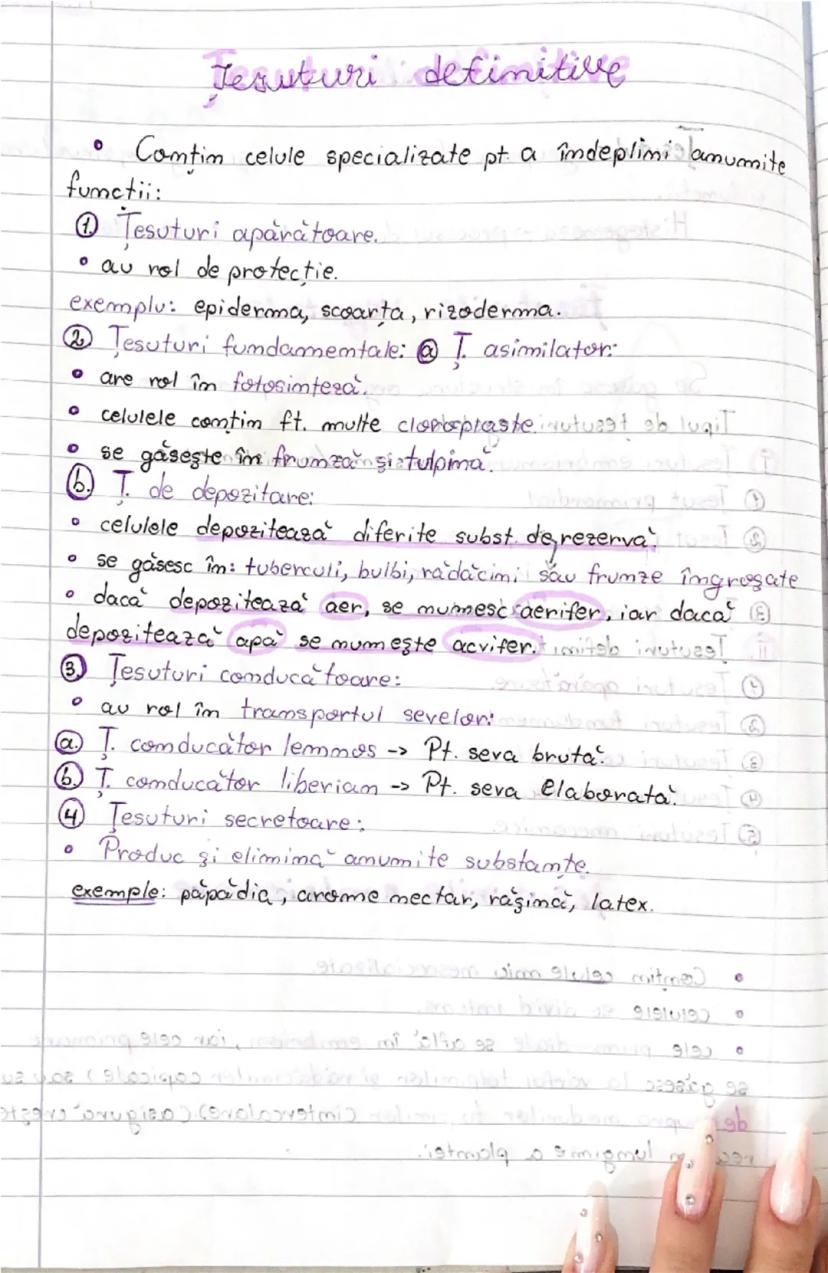 Țesuturi definitive
• Conțin celule specializate pt. a îndeplini anumite
funcții:
① Țesuturi apărătoare.
• au rol de protecție.
exemplu: epiderma, scoarța, rizoderma.
② Țesuturi fundamentale: ⓐ Ț. asimilator:
• are rol în fotosinteză.
• celulele conțin ft. multe cloroplaste.
• se găsește în frunză și tulpină.
ⓑ. Ț. de depozitare:
• celulele depozitează diferite subst. de rezervă.
• se găsesc în: tuberculi, bulbi, rădăcini sau frunze îngroșate
• dacă depozitează aer, se numesc aerifer, iar dacă
depozitează apă se numește acvifer.
③. Țesuturi conducătoare:
• au rol în transportul sevelor:
ⓐ. Ț. conducător lemnos -> Pt. seva brută.
ⓑ. Ț. conducător liberian -> Pt. seva Elaborată.
④ Țesuturi secretoare:
• Produc și elimină anumite substanțe.
exemple: păpădia, arome nectar, rășină, latex.